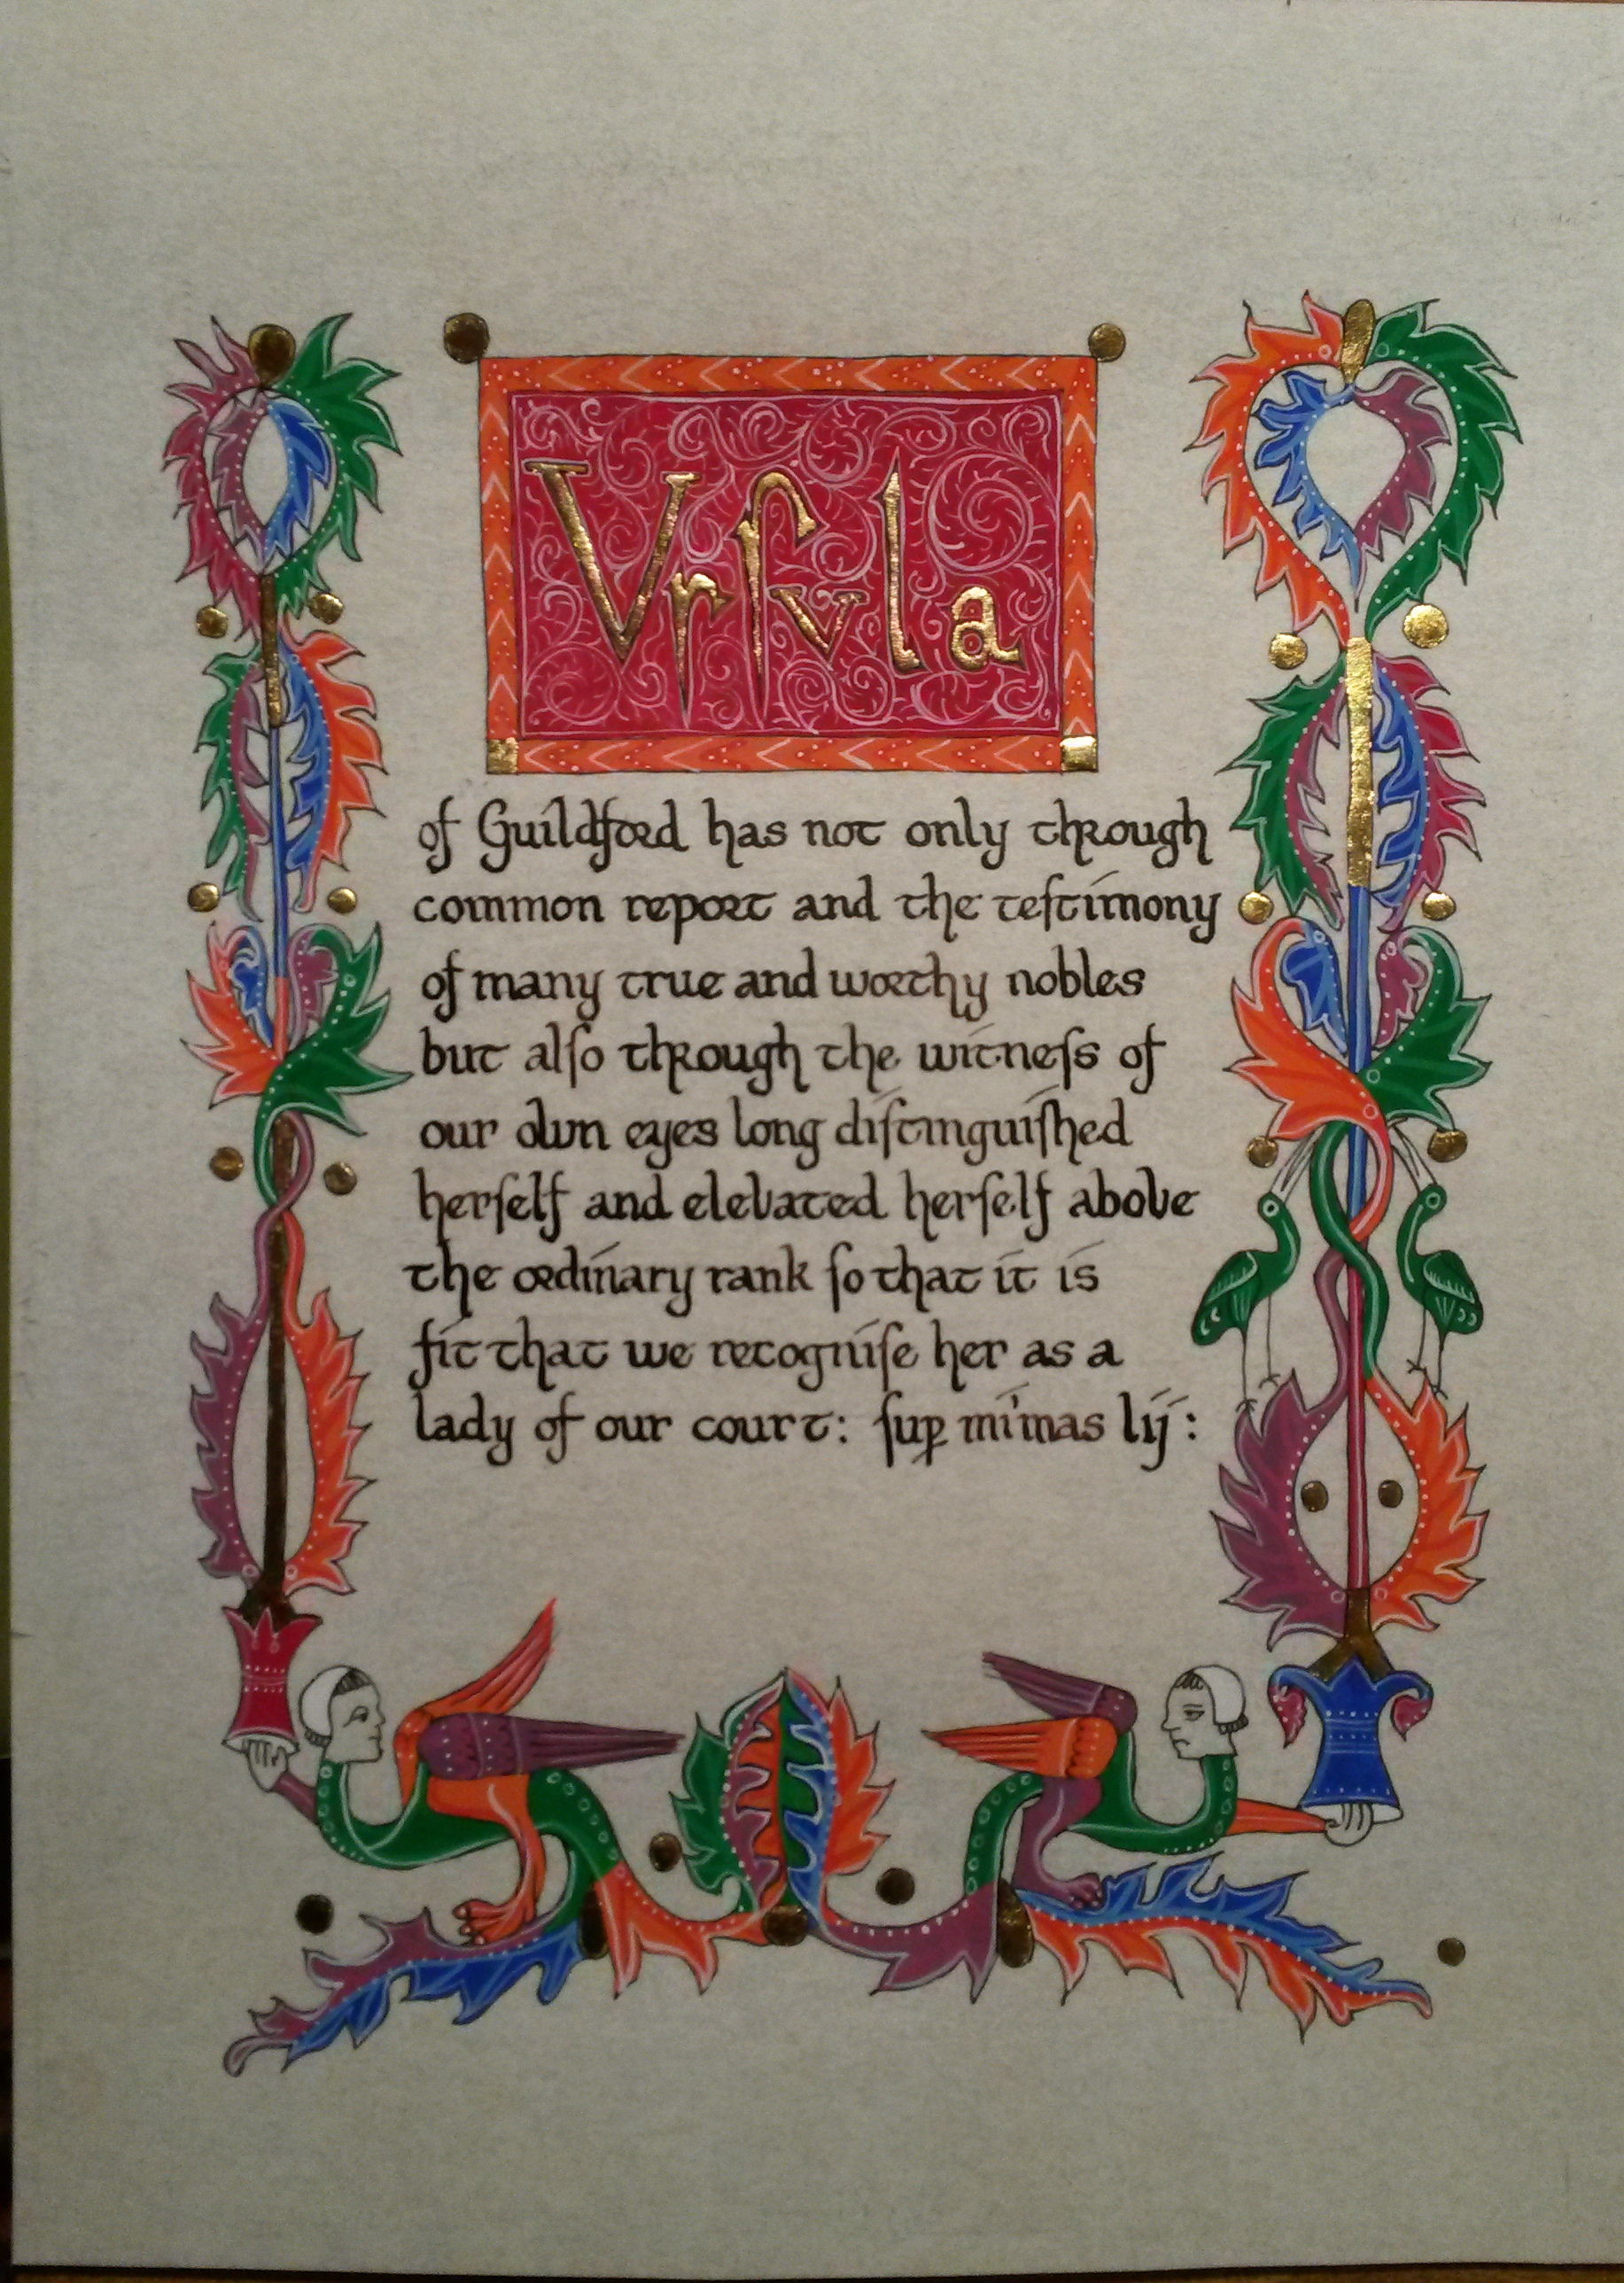 Vrſvla
of Guildford has not only through
common report and the teſtimony
of many true and worthy nobles
but alſo through the witneſs of
our own eyes long diſtinguiſhed
herſelf and elevated herſelf above
the ordinary rank ſo that it is
fit that we recogniſe her as a
lady of our court: ſuꝑ mimas lij: